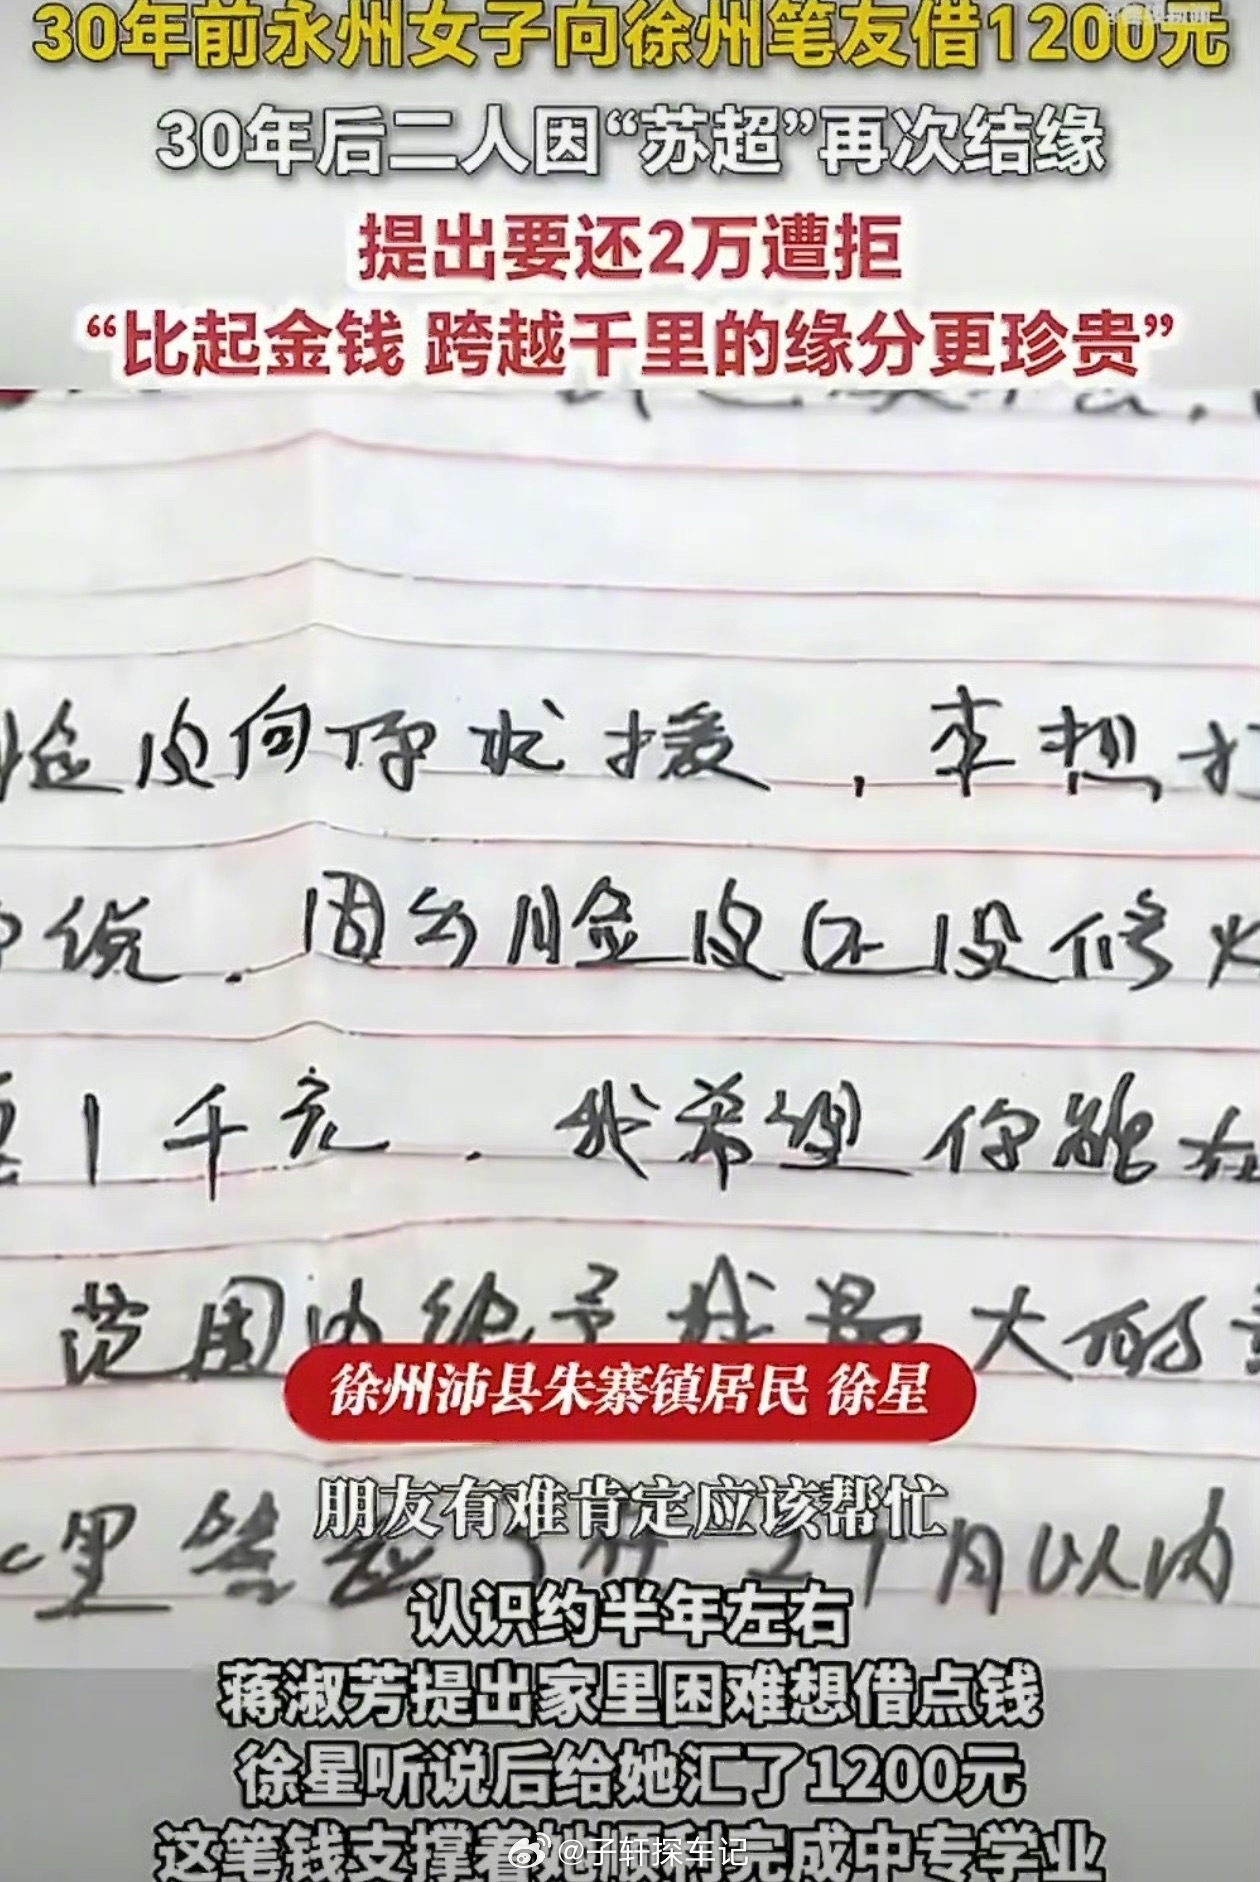 30年前永州女子向徐州笔友借1200元
30年后二人因“苏超”再次结缘
提出要还2万遭拒
“比起金钱 跨越千里的缘分更珍贵”
脸皮向你求援，本想打
说．因为脸皮还没修炼
1千元．我希望你能在
范围内给予我最大的
徐州沛县朱寨镇居民 徐星
朋友有难肯定应该帮忙
里 2个月以内
认识约半年左右
蒋淑芳提出家里困难想借点钱
徐星听说后给她汇了1200元
这笔钱支撑着她顺利完成中专学业
@子轩探车记